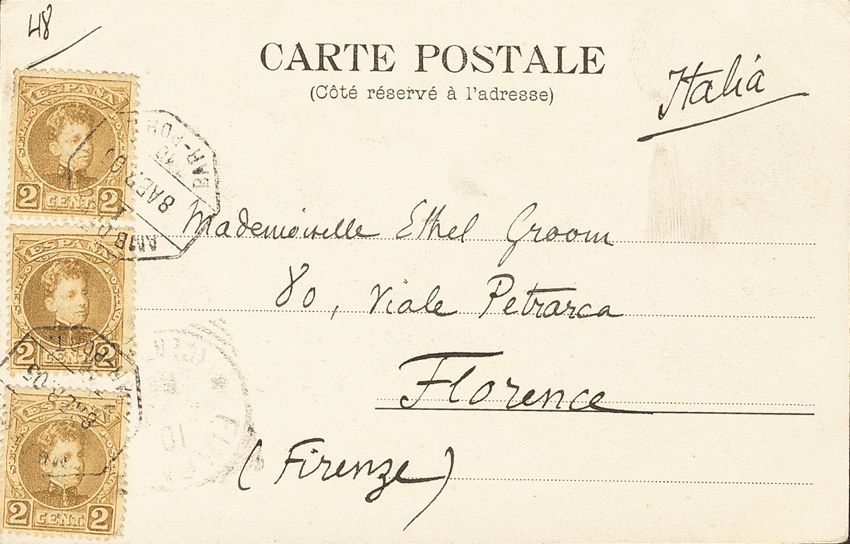 48
CARTE POSTALE
(Côté réservé à l'adresse)
Italia
ESPAÑA
2 CENT. 2
Mademoiselle Ethel Groom
80, Viale Petrarca
ESPAÑA
2 CENT. 2
Florence
(Firenze)
ESPAÑA
2 CENT. 2
AMB
8 ABR 05
BAR-POR
10